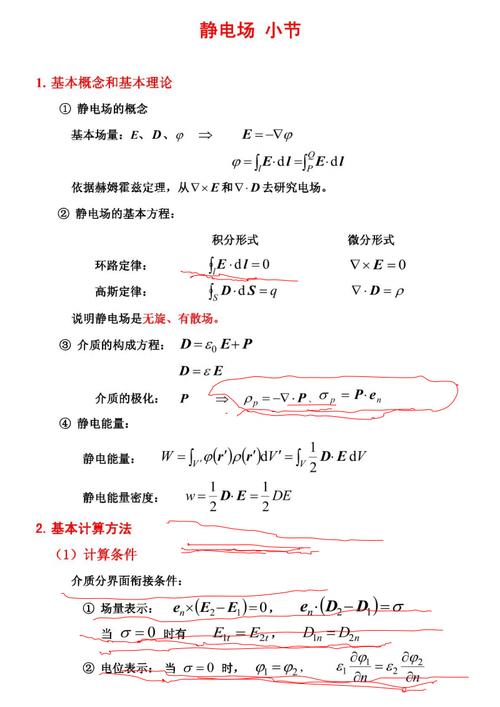 静电场 小节
1. 基本概念和基本理论
① 静电场的概念
基本场量：E、D、φ ⇒ E = −∇φ
φ = ∫_l E · dl = ∫_P^Q E · dl
依据赫姆霍兹定理，从∇ × E 和∇ · D 去研究电场。
② 静电场的基本方程：
积分形式 微分形式
环路定律： ∮_l E · dl = 0 ∇ × E = 0
高斯定律： ∮_S D · dS = q ∇ · D = ρ
说明静电场是无旋、有散场。
③ 介质的构成方程： D = ε₀ E + P
D = ε E
介质的极化： P ⇒ ρ_p = −∇ · P、σ_p = P · e_n
④ 静电能量：
静电能量： W = ∫_V′ φ(r′)ρ(r′)dV′ = ∫_V 1/2 D · E dV
静电能量密度： w = 1/2 D · E = 1/2 DE
2. 基本计算方法
（1）计算条件
介质分界面衔接条件：
① 场量表示： e_n × (E₂ − E₁) = 0， e_n · (D₂ − D₁) = σ
当 σ = 0 时有 E_1t = E_2t， D_1n = D_2n
② 电位表示： 当 σ = 0 时， φ₁ = φ₂， ε₁ ∂φ₁/∂n = ε₂ ∂φ₂/∂n